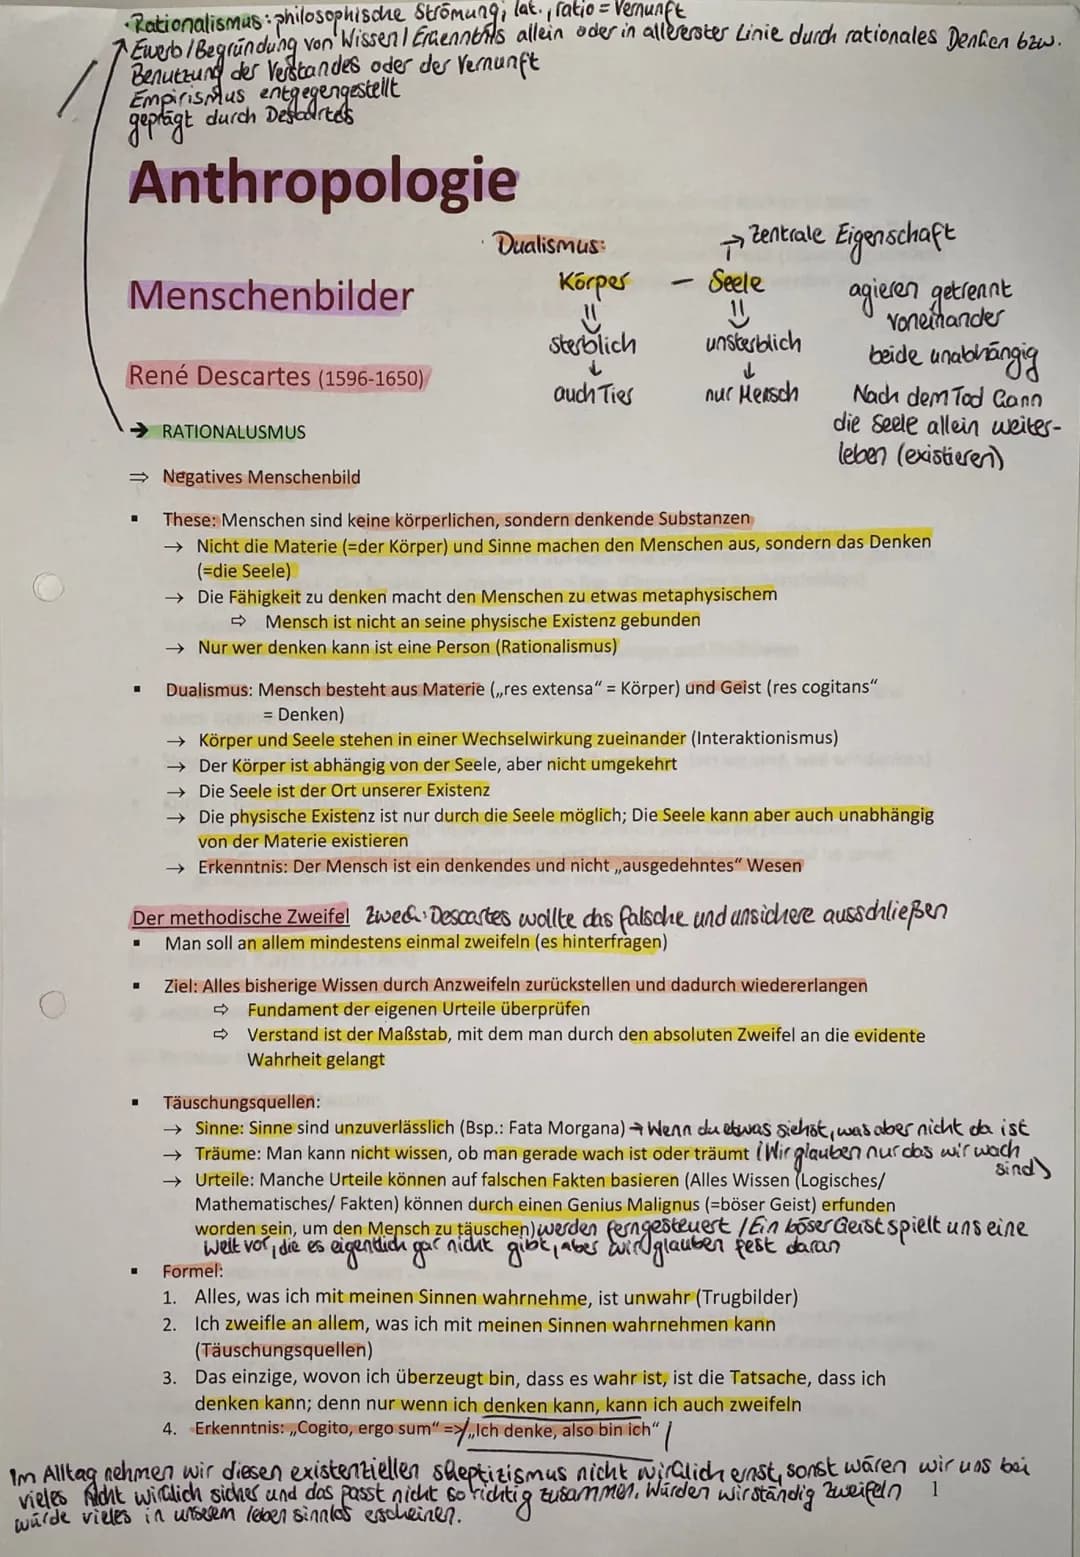 ·Rationalismus: philosophische Strömung; lat., ratio = Vernunft
Ewerb/Begründung von Wissen/Erkenntnis allein oder in allererster Linie durch rationales Denken bzw.
Benutzung der Verstandes oder der Vernunft
Empirismus entgegengestellt
geprägt durch Descartes
Anthropologie
Dualismus:
→ Zentrale Eigenschaft
Körper — Seele
agieren getrennt
voneinander
sterblich
unsterblich
beide unabhängig
auch Tier
nur Mensch
Nach dem Tod kann
die Seele allein weiter-
leben (existieren)
Menschenbilder
René Descartes (1596-1650)
→ RATIONALUSMUS
⇒ Negatives Menschenbild
▪ These: Menschen sind keine körperlichen, sondern denkende Substanzen
→ Nicht die Materie (=der Körper) und Sinne machen den Menschen aus, sondern das Denken
(=die Seele)
→ Die Fähigkeit zu denken macht den Menschen zu etwas metaphysischem
⇨ Mensch ist nicht an seine physische Existenz gebunden
→ Nur wer denken kann ist eine Person (Rationalismus)
▪ Dualismus: Mensch besteht aus Materie („res extensa“ = Körper) und Geist (res cogitans“
= Denken)
→ Körper und Seele stehen in einer Wechselwirkung zueinander (Interaktionismus)
→ Der Körper ist abhängig von der Seele, aber nicht umgekehrt
→ Die Seele ist der Ort unserer Existenz
→ Die physische Existenz ist nur durch die Seele möglich; Die Seele kann aber auch unabhängig
von der Materie existieren
→ Erkenntnis: Der Mensch ist ein denkendes und nicht „ausgedehntes“ Wesen
Der methodische Zweifel Zweck: Descartes wollte das falsche und unsichere ausschließen
▪ Man soll an allem mindestens einmal zweifeln (es hinterfragen)
▪ Ziel: Alles bisherige Wissen durch Anzweifeln zurückstellen und dadurch wiedererlangen
⇨ Fundament der eigenen Urteile überprüfen
⇨ Verstand ist der Maßstab, mit dem man durch den absoluten Zweifel an die evidente
Wahrheit gelangt
▪ Täuschungsquellen:
→ Sinne: Sinne sind unzuverlässlich (Bsp.: Fata Morgana) → Wenn du etwas siehst, was aber nicht da ist
→ Träume: Man kann nicht wissen, ob man gerade wach ist oder träumt (Wir glauben nur das wir wach
sind)
→ Urteile: Manche Urteile können auf falschen Fakten basieren (Alles Wissen (Logisches/
Mathematisches/ Fakten) können durch einen Genius Malignus (=böser Geist) erfunden
worden sein, um den Mensch zu täuschen) werden ferngesteuert / Ein böser Geist spielt uns eine
Welt vor, die es eigentlich gar nicht gibt, aber wir glauben fest daran
▪ Formel:
1. Alles, was ich mit meinen Sinnen wahrnehme, ist unwahr (Trugbilder)
2. Ich zweifle an allem, was ich mit meinen Sinnen wahrnehmen kann
(Täuschungsquellen)
3. Das einzige, wovon ich überzeugt bin, dass es wahr ist, ist die Tatsache, dass ich
denken kann; denn nur wenn ich denken kann, kann ich auch zweifeln
4. Erkenntnis: „Cogito, ergo sum“ => „Ich denke, also bin ich“
Im Alltag nehmen wir diesen existentiellen skeptizismus nicht wirklich ernst, sonst wären wir uns bei
vieles nicht wirklich sicher und das passt nicht so richtig zusammen. Würden wir ständig zweifeln
1
würde vieles in unserem leben sinnlos erscheinen.